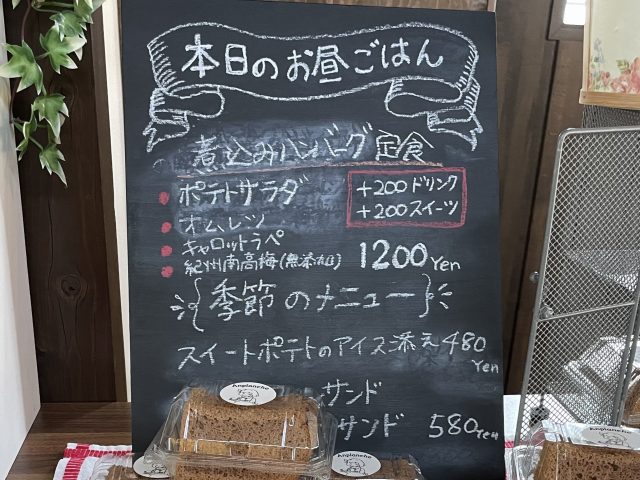 本日のお昼ごはん
煮込みハンバーグ定食
ポテトサラダ
オムレツ
キャロットラペ
紀州南高梅(無添加)
+200ドリンク
+200スイーツ
1200Yen
季節のメニュー
スイートポテトのアイス添え480Yen
サンド
サンド 580Yen
Anplanche